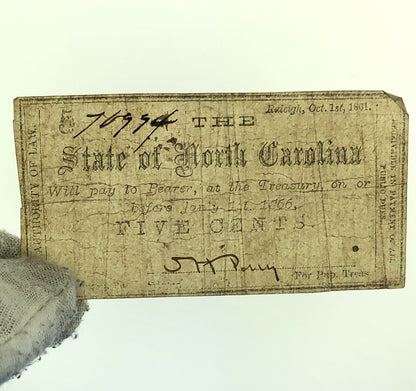 Raleigh, Oct. 1st, 1861.
5
70994 THE
State of North Carolina
Will pay to Bearer, at the Treasury, on or
before Jan'y 1st, 1866,
FIVE CENTS
For Pub. Treas
AUTHORITY OF LAW.
RECEIVABLE IN PAYMENT OF ALL
PUBLIC DUES.